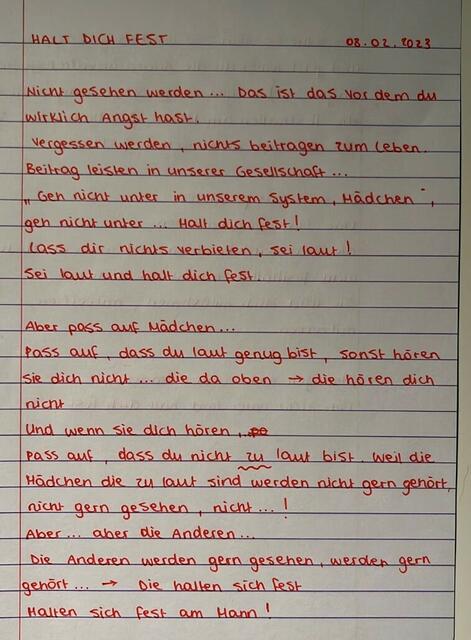 HALT DICH FEST 08.02.2023
Nicht gesehen werden... Das ist das vor dem du
wirklich Angst hast.
Vergessen werden, nichts beitragen zum Leben.
Beitrag leisten in unserer Gesellschaft...
„Geh nicht unter in unserem System, Mädchen",
geh nicht unter... Halt dich fest!
Lass dir nichts verbieten, sei laut!
Sei laut und halt dich fest.
Aber pass auf Mädchen...
Pass auf, dass du laut genug bist, sonst hören
sie dich nicht... die da oben → die hören dich
nicht
Und wenn sie dich hören,
pass auf, dass du nicht zu laut bist. Weil die
Mädchen die zu laut sind werden nicht gern gehört,
nicht gern gesehen, nicht...!
Aber... aber die Anderen...
Die Anderen werden gern gesehen, werden gern
gehört... → Die halten sich fest
Halten sich fest am Mann!